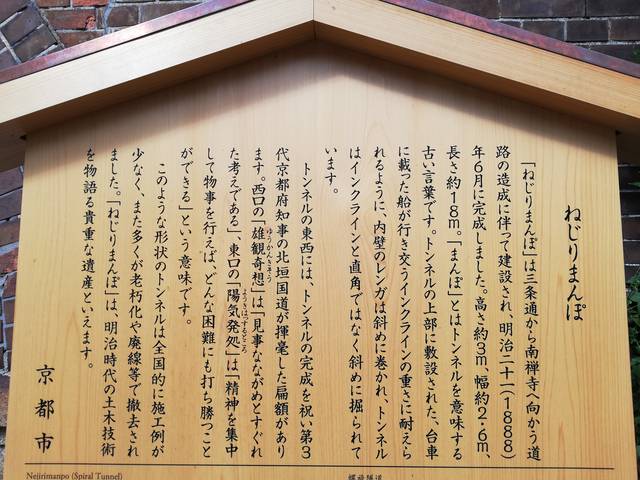 ねじりまんぽ
「ねじりまんぽ」は三条通から南禅寺へ向かう道
路の造成に伴って建設され、明治二十一（1888）
年6月に完成しました。高さ約3m、幅約2・6m、
長さ約18m。「まんぽ」とはトンネルを意味する
古い言葉です。トンネルの上部に敷設された、台車
に載った船が行き交うインクラインの重さに耐えら
れるように、内壁のレンガは斜めに巻かれ、トンネル
はインクラインと直角ではなく斜めに掘られて
います。
トンネルの東西には、トンネルの完成を祝い第3
代京都府知事の北垣国道が揮毫した扁額があり
ます。西口の「雄観奇想」は「見事なながめとすぐれ
ゆうかんきそう
た考えである」、東口の「陽気発処」は「精神を集中
ようきはっするところ
して物事を行えば、どんな困難にも打ち勝つこと
ができる」という意味です。
このような形状のトンネルは全国的に施工例が
少なく、また多くが老朽化や廃線等で撤去され
ました。「ねじりまんぽ」は、明治時代の土木技術
を物語る貴重な遺産といえます。
京都市
Nejirimanpo (Spiral Tunnel)